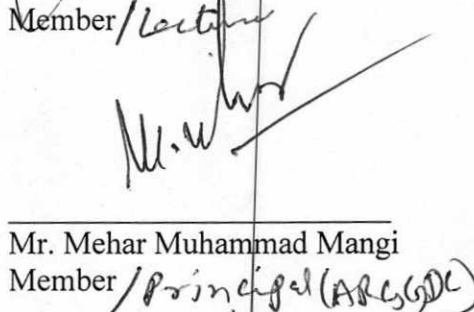 Member/Lecturer
Mr. Mehar Muhammad Mangi
Member/Principal (ARGGDC)